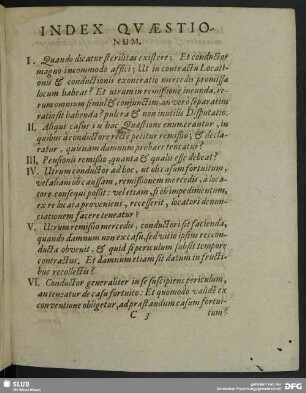 INDEX QVÆSTIO-
NUM.
I. Quando dicatur sterilitas existere; Et conductor
magno incommodo affici; Ut in contractu Locati-
onis & conductionis exoneratio mercedis promissæ
locum habeat? Et utrum in remissione ineunda, re-
rum omnium simul & conjunctim, an vero separatim
ratio sit habenda? pulcra & non inutilis Disputatio.
II. Aliqui casus in hac Quæstione enumerantur, in
quibus à conductore recte petitur remissio; & decla-
ratur, quisnam damnum probare teneatur?
III, Pensionis remissio, quanta & qualis esse debeat?
IV. Utrum conductor ad hoc, ut ob casum fortuitum,
vel aliam ob caussam, remissionem mercedis, à loca-
tore consequi possit: vel etiam, si ob impedimentum,
ex re locata proveniens, recesserit, locatori denun-
ciationem facere teneatur?
V. Utrum remissio mercedis, conductori sit facienda,
quando damnum non ex casu, sed vitio ipsius rei con-
ductæ obvenit, & quid si periculum subsit tempore
contractus, Et damnum etiam sit datum in fructi-
bus recollectis?
VI. Conductor generaliter in se suscipiens periculum,
an teneatur de casu fortuito: Et quomodo valide ex
conventione obligetur, ad præstandum casum fortui-
C 3 tum?
SLUB
DFG